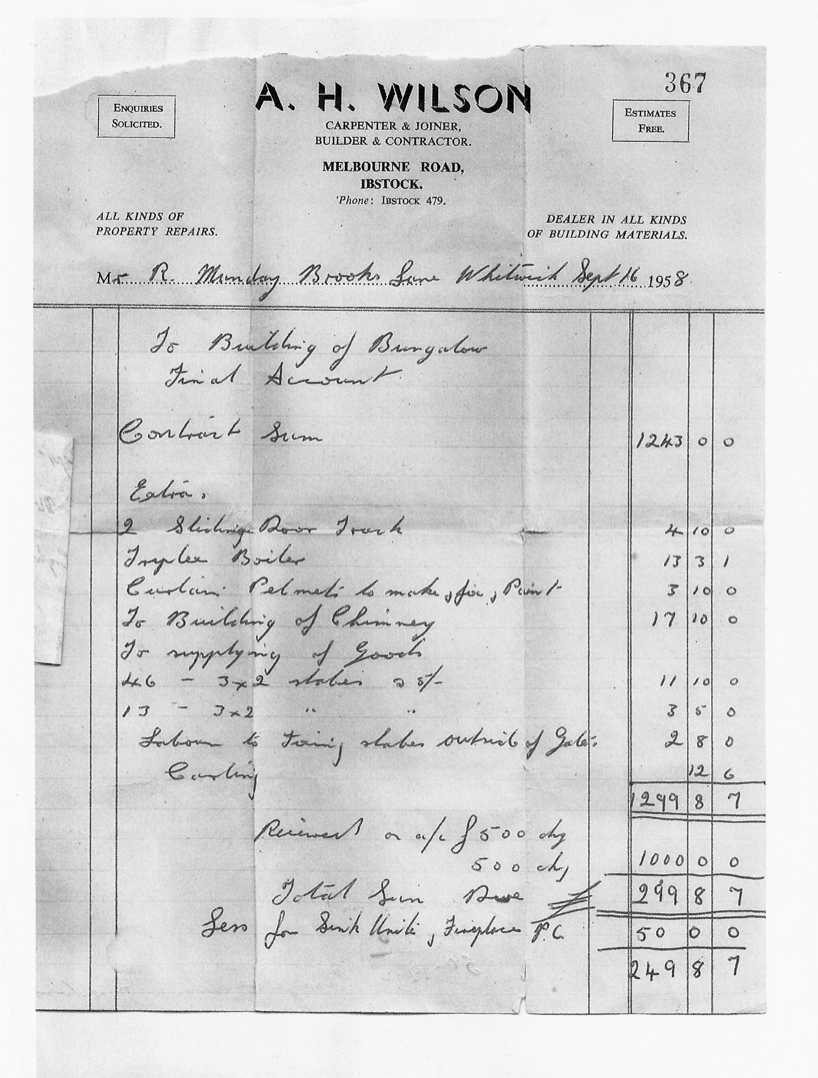 367
ENQUIRIES SOLICITED.
A. H. WILSON
ESTIMATES FREE.
CARPENTER & JOINER,
BUILDER & CONTRACTOR.
MELBOURNE ROAD,
IBSTOCK.
'Phone: IBSTOCK 479.
ALL KINDS OF PROPERTY REPAIRS.
DEALER IN ALL KINDS OF BUILDING MATERIALS.
Mr R. Munday Brooks Lane Whitwick Sept 16 1958
To Building of Bungalow
Final Account
Contract Sum 1243 0 0
Extra.
2 Sliding Door Track 4 10 0
Triplex Boiler 13 3 1
Curtain Pelmets to make, fix, Paint 3 10 0
To Building of Chimney 17 10 0
To supplying of Goods
46 - 3x2 slabes @ 5/- 11 10 0
13 - 3x2 " " 3 5 0
Labour to Fixing slabes outside of Gate. 2 8 0
Carting 12 6
1299 8 7
Received on a/c £500 chq
500 chq 1000 0 0
Total Sum Due 299 8 7
Less for Sink Unit, Fireplace P.C. 50 0 0
249 8 7